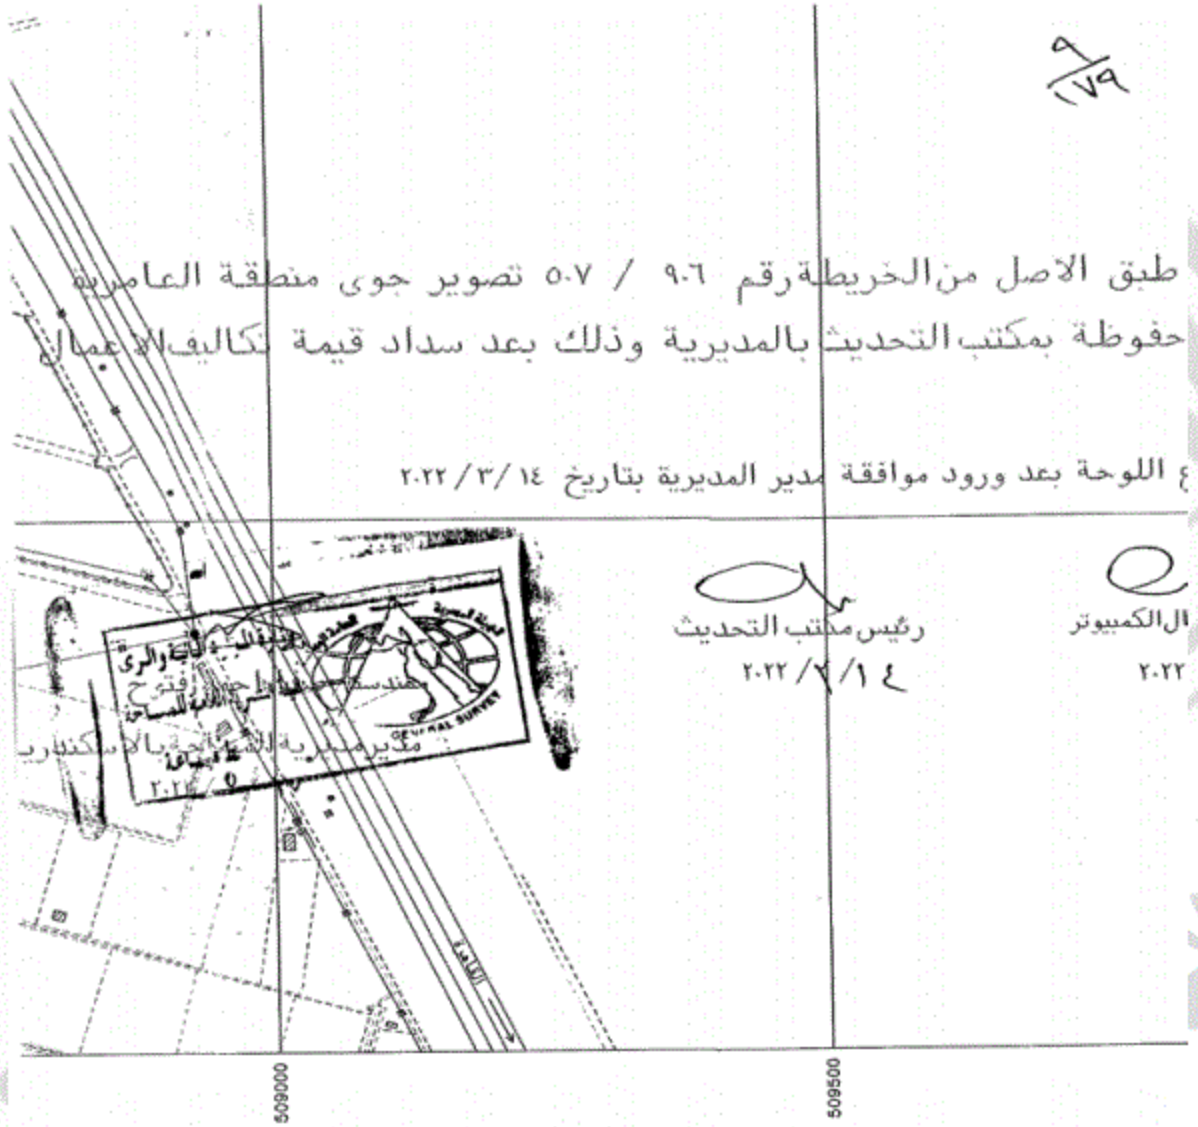 ٩
١٧٩
طبق الاصل من الخريطة رقم ٩٠٦ / ٥٠٧ تصوير جوى منطقة العامرية
حفوظة بمكتب التحديث بالمديرية وذلك بعد سداد قيمة تكاليف الاعمال
ع اللوحة بعد ورود موافقة مدير المديرية بتاريخ ١٤ /٣ / ٢٠٢٢
ال الكمبيوتر
٢٠٢٢
رئيس مكتب التحديث
١٤/ / ٢٠٢٢
الهيئة المصرية العامة
GENERAL SURVEY
للمساحة
مدير مديرية المساحة بالاسكندري
القاهرة
509000
509500